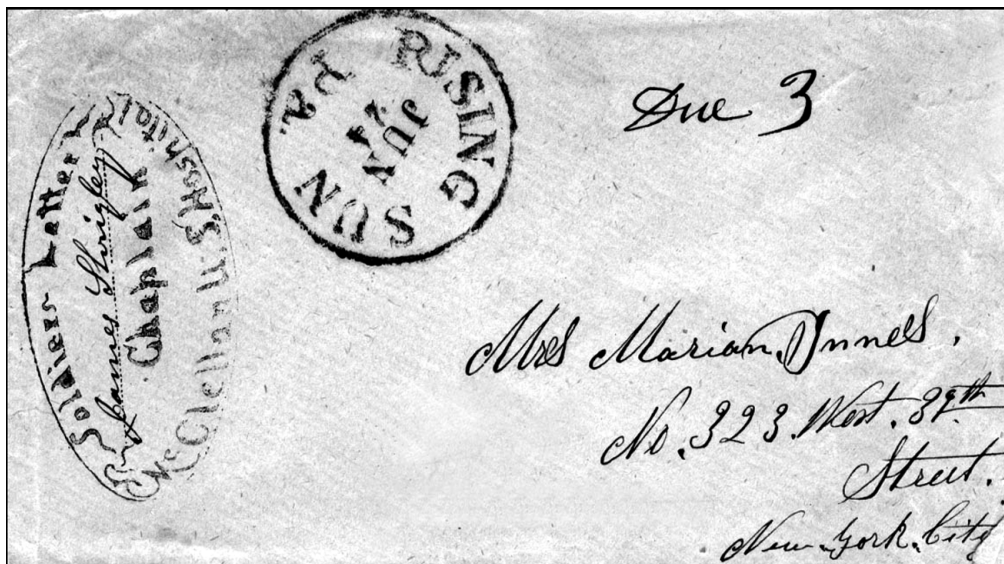 Soldiers Letter
James Shrigley
Chaplain
Mc.Clellan U.S. Hoshital
RISING SUN PA.
JUN
14
Due 3
Mrs Marian Innes.
No. 323. West. 39th
Street.
New York. City